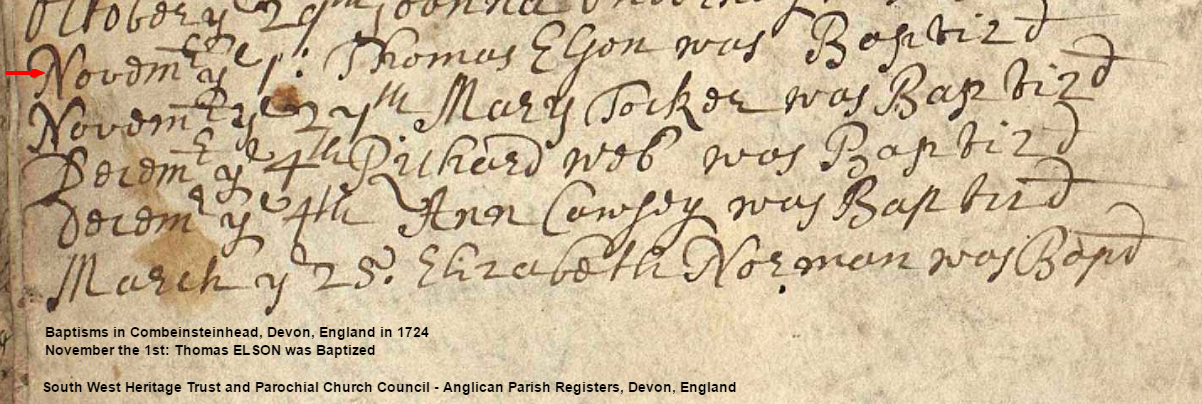 October ye 29th Joanna was
Novembr ye 1st: Thomas Elson was Baptizd
Novembr ye 27th Mary Tocker was Baptizd
Decembr ye 4th Richard web was Baptizd
Decembr ye 4th Ann Cawsey was Baptizd
March ye 25: Elizabeth Norman was Bapd
Baptisms in Combeinsteinhead, Devon, England in 1724
November the 1st: Thomas ELSON was Baptized
South West Heritage Trust and Parochial Church Council - Anglican Parish Registers, Devon, England